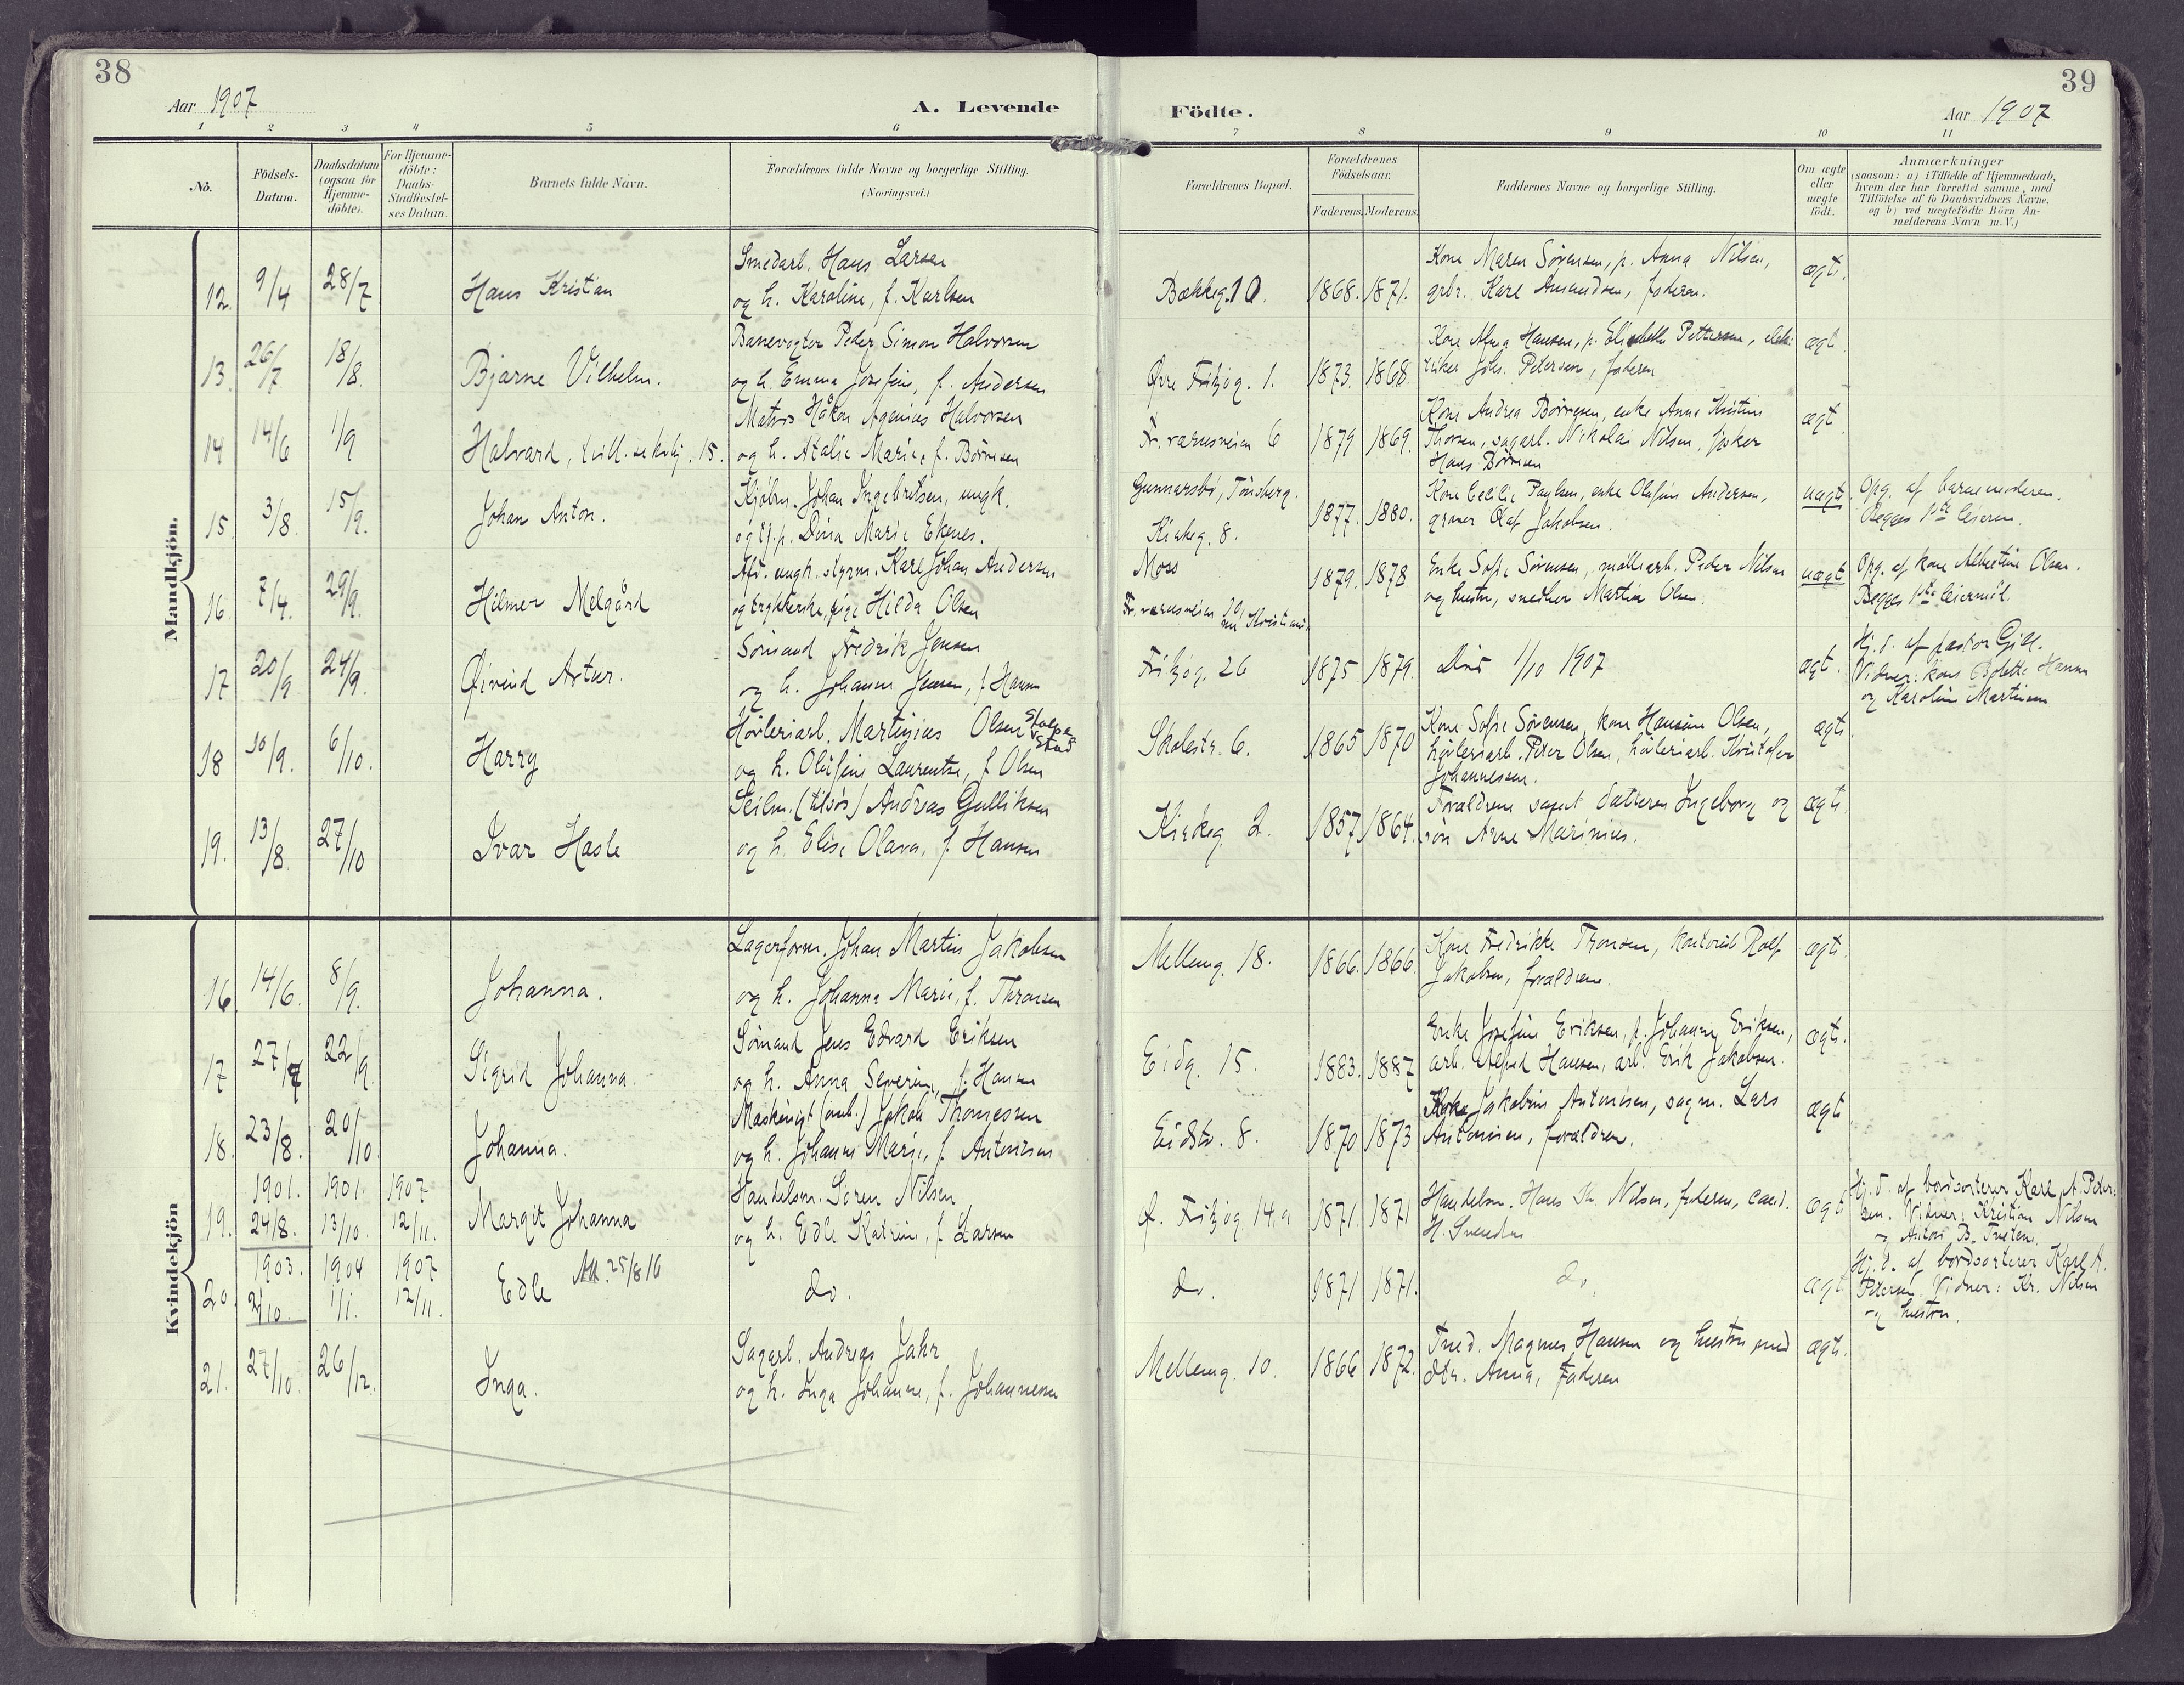 38
Aar 1907
A. Levende
Födte.
Aar 1907
39
1 2 3 4 5 6 7 8 9 10 11
Nö.
Födsels-
Datum.
Daabsdatum
(ogsaa for
Hjemme-
döbte).
For Hjemme-
döbte:
Daabs-
Stadfæstel-
ses Datum.
Barnets fulde Navn.
Forældrenes fulde Navne og borgerlige Stilling.
(Næringsvei.)
Forældrenes Bopæl.
Forældrenes
Födselsaar.
Faderens. Moderens.
Faddernes Navne og borgerlige Stilling.
Om ægte
eller
uægte
födt.
Anmærkninger
(saasom: a) i Tilfælde af Hjemmedaab,
hvem der har forrettet samme, med
Tilföielse af to Daabsvidners Navne,
og b) ved uægtefödte Börn An-
melderens Navn m. V.)
Mandkjön.
Smedarb. Hans Larsen
12. 9/4 28/7 Hans Kristian og h. Karoline, f. Karlsen
Bækkeg. 10. 1868. 1871.
Kone Maren Sørensen, p. Anna Nilsen,
grbr. Karl Amundsen, faderen.
ægt.
Banevogter Peder Simon Halvorsen
13. 26/7 18/8. Bjarne Vilhelm. og h. Emma Josefine, f. Andersen
Øvre Fritzøg. 1. 1873. 1868.
Kone Alma Hansen, p. Elisabeth Pettersen, elek-
triker Johs. Petersen, faderen
ægt.
Matros Håkon Agenius Halvorsen
14 14/6 1/9 Halvard, tvill. se kvkj. 15. og h. Atalie Marie, f. Börresen
Fr.værnsveien 6 1879 1869.
Kone Andrea Børresen, enke Anna Kristine
Thorsen, sagarb. Nikolai Nilsen, fisker
Hans Børresen
ægt.
Kjøbm. Johan Ingebretsen, ungk.
15. 3/8. 15/9. Johan Anton. og tj.p. Dina Marie Ekenes.
Gunnarsbö, Tönsberg.
Kirkeg. 8. 1877. 1880.
Kone Cecilie Paulsen, enke Olufine Andersen,
gruver Olaf Jakobsen.
uægt. Opg. af barnemoderen.
Begges 1ste leierm.
Afd. ungk. styrm. Karl Johan Andersen
16. 7/4. 29/9. Hilmer Melgård og trykkerske, pige Hilda Olsen
Moss
Fr.værnsveien 29, nu Kristiania
1879. 1878
Enke Sofie Sörensen, möllearb. Peder Nilsen
og hustru, snedker Martin Olsen.
uægt Opg. af kone Albertine Olsen.
Begges 1ste leiermål.
Sömand Fredrik Jensen
17 20/9 24/9. Øivind Artur. og h. Johanne Jensen, f. Hansen
Fritzøg. 26 1875 1879. Död 1/10 1907 ægt.
Hj.d. af pastor Gjil.
Vidner: kone Bolette Hansen
og Karoline Martinsen
Hövleriarb. Martinius Olsen Stolpe-
stad
18 10/9. 6/10. Harry og h. Olufine Laurentze, f. Olsen
Skolestr. 6. 1865 1870
Kone Sofie Sörensen, kone Hansine Olsen,
hövleriarb. Peter Olsen, hövleriarb. Kristofer
Johannessen.
ægt.
Seilm. (tilsös) Andreas Gulliksen
19. 13/8. 27/10 Ivar Hasle og h. Elise Olava, f. Hansen
Kirkeg 2. 1857 1864.
Forældrene samt datteren Ingeborg og
sön Arne Marinius.
ægt.
Kvindekjön
Lagerform. Johan Martin Jakobsen
16. 14/6. 8/9. Johanna. og h. Johanne Marie, f. Thronsen
Mellemg. 18. 1866. 1866.
Kone Fredrikke Thronsen, kontorist Rolf
Jakobsen, forældrene.
ægt.
Sömand Jens Edvard Eriksen
17 27/7 22/9. Sigrid Johanna. og h. Anna Severine, f. Hansen
Eidg. 15. 1883. 1887
Enke Josefine Eriksen, p. Johanne Eriksen,
arb. Alfred Hansen, arb. Erik Jakobsen.
ægt.
Maskinist (amb.) Jakob Thomessen
18. 23/8. 20/10. Johanna. og h. Johanne Marie, f. Antonisen
Eidstr. 8. 1870 1873
Jakobine Antonisen, sagm. Lars
Antonisen, forældrene.
ægt
1901. 1901. 1907 Handelsm. Sören Nilsen
19. 24/8. 13/10. 12/11. Margit Johanna og h. Edle Katrine, f. Larsen
Ø. Fritzøg. 14.a 1871. 1871
Handelsm. Hans Kr. Nilsen, faderen, cand.
H. Svendsen
ægt
Hj.d. af bordsorterer Karl A. Peter-
sen. Vidner: Kristian Nilsen
og Anton B. Tveten.
1903. 1904 1907
20. 2/10. 1/1. 12/11. Edle Att. 25/8 16 do.
do. 1871 1871. do. ægt
Hj.d. af bordsorterer Karl A.
Petersen. Vidner: Kr. Nilsen
og hustru.
Sagarb. Andreas Jahr
21. 27/10. 26/12. Inga. og h. Inga Johanne, f. Johannessen
Mellemg. 10. 1866 1872.
Sned. Magnus Hansen og hustru med
dtr. Anna, faderen
ægt.